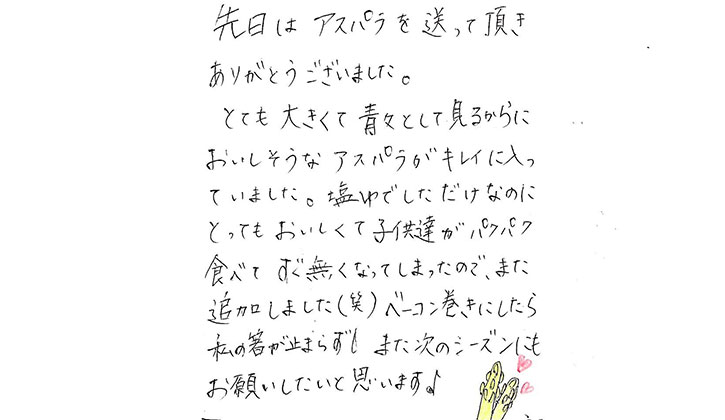 先日は アスパラを送って頂き
ありがとうございました。
とても大きくて青々として見るからに
おいしそうなアスパラがキレイに入っ
ていました。塩ゆでしただけなのに
とってもおいしくて子供達がパクパク
食べてすぐ無くなってしまったので、また
追加しました(笑)ベーコン巻きにしたら
私の箸が止まらず! また次のシーズンにも
お願いしたいと思います♪